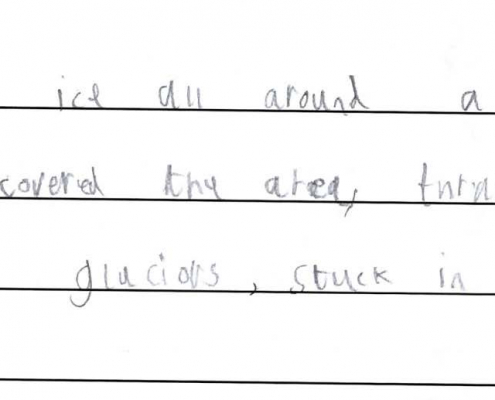 ice all around a
covered the area,
glaciors, stuck in